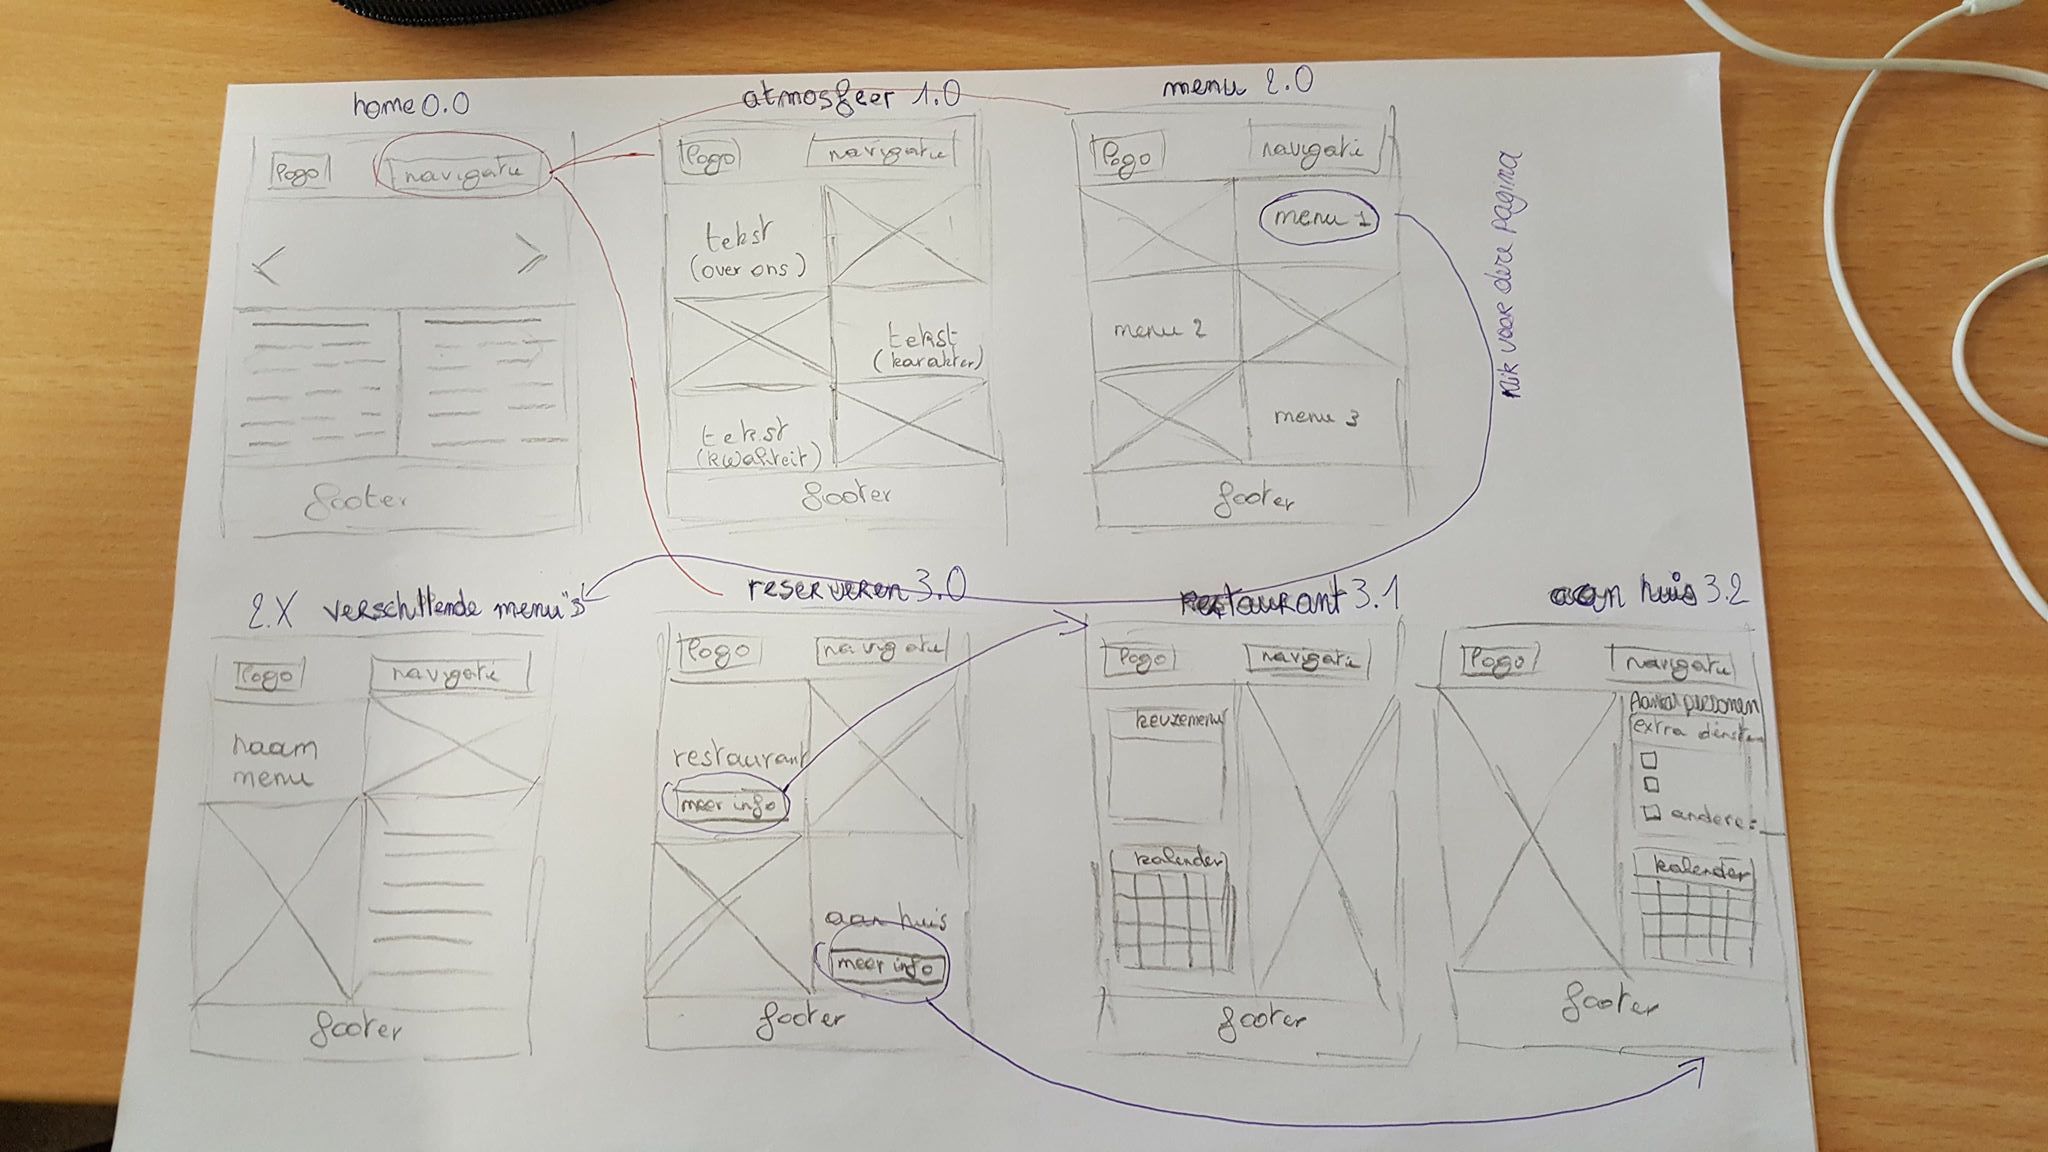 home 0.0
logo
navigatie
<
>
footer
atmosfeer 1.0
logo
navigatie
tekst
(over ons)
tekst
(karakter)
tekst
(kwaliteit)
footer
menu 2.0
logo
navigatie
menu 1
menu 2
menu 3
footer
klik voor deze pagina
2.X verschillende menu's
logo
navigatie
naam
menu
footer
reserveren 3.0
logo
navigatie
restaurant
meer info
aan huis
meer info
footer
restaurant 3.1
logo
navigatie
keuzemenu
kalender
footer
aan huis 3.2
logo
navigatie
Aantal personen
extra diensten
andere: _
kalender
footer